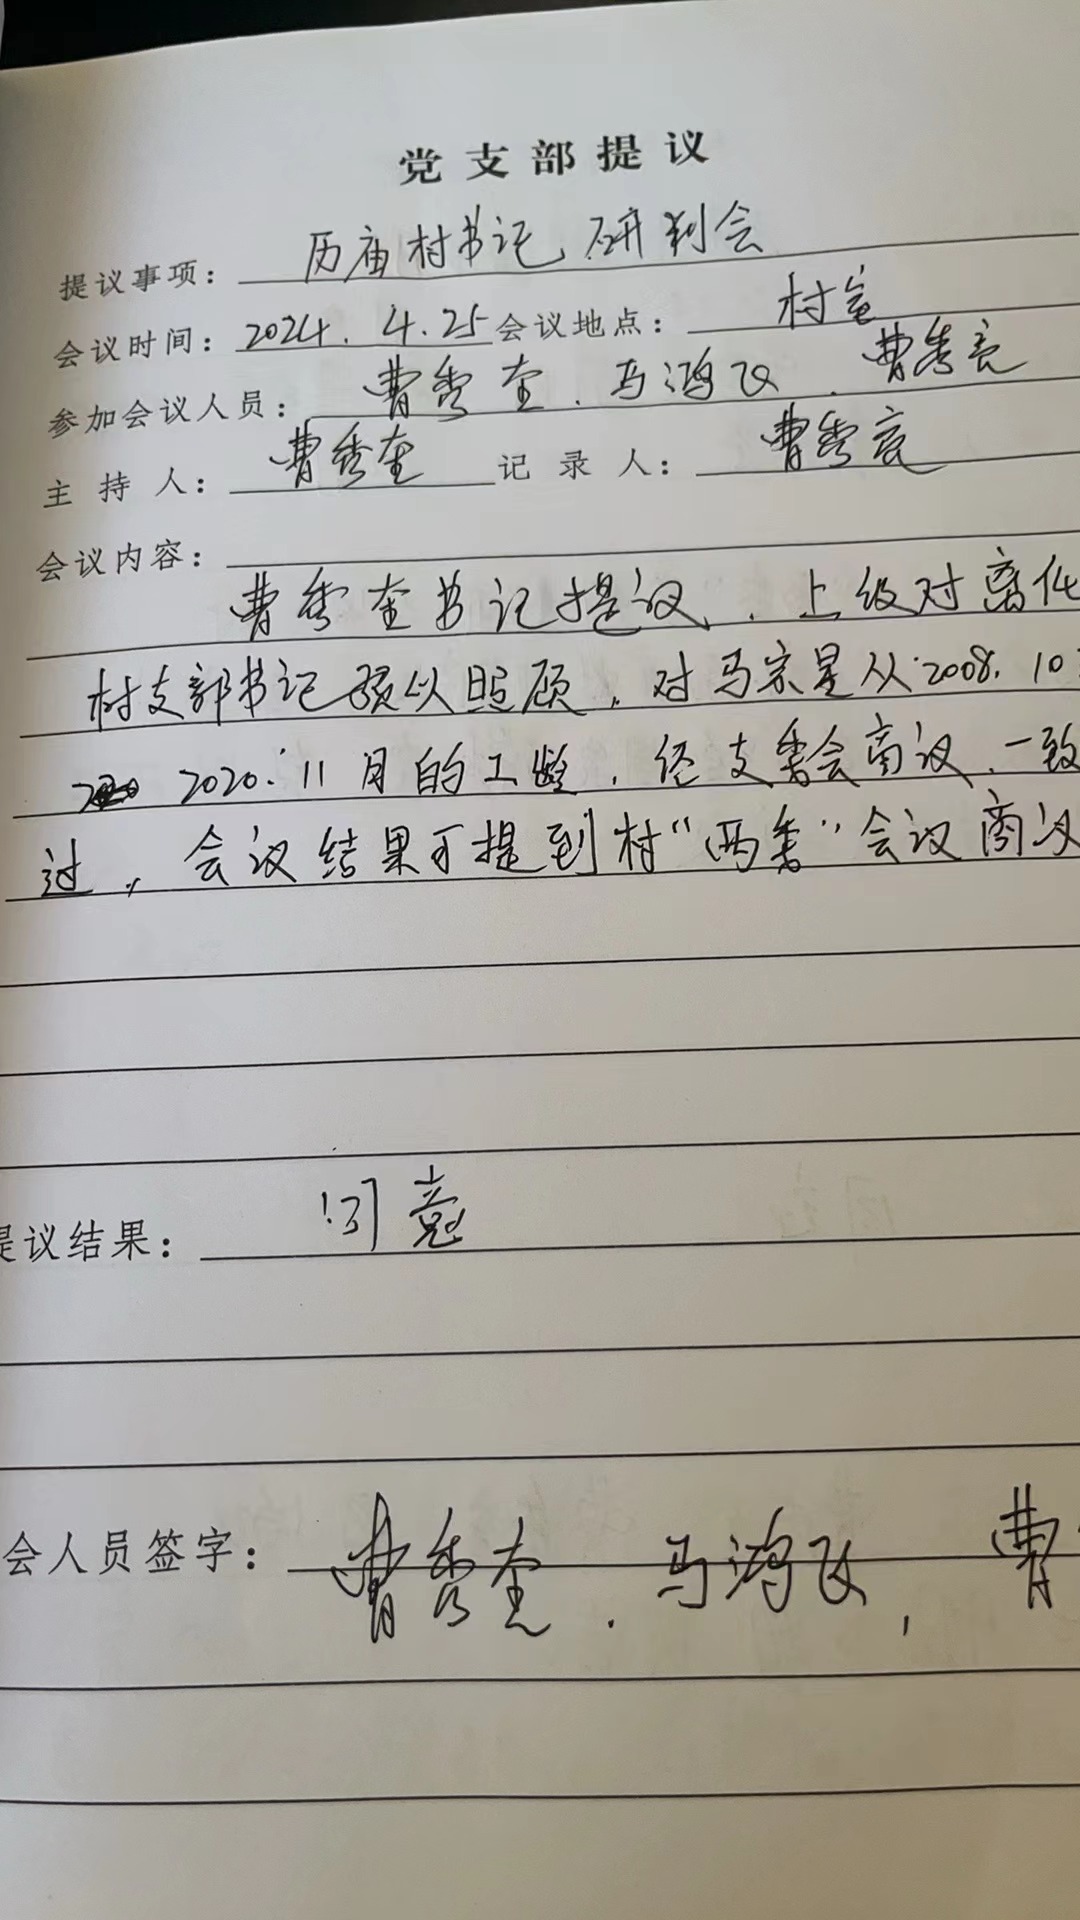 党支部提议
提议事项：历庙村书记研判会
会议时间：2024.4.25 会议地点：村室
参加会议人员：曹秀奎、马鸿飞、曹秀亮
主持人：曹秀奎 记录人：曹秀亮
会议内容：
曹秀奎书记提议，上级对离任
村支部书记予以照顾，对马宗星从2008.10
2020.11月的工龄，经支委会商议，一致
过，会议结果可提到村“两委”会议商议
提议结果：同意
会人员签字：曹秀奎、马鸿飞，曹